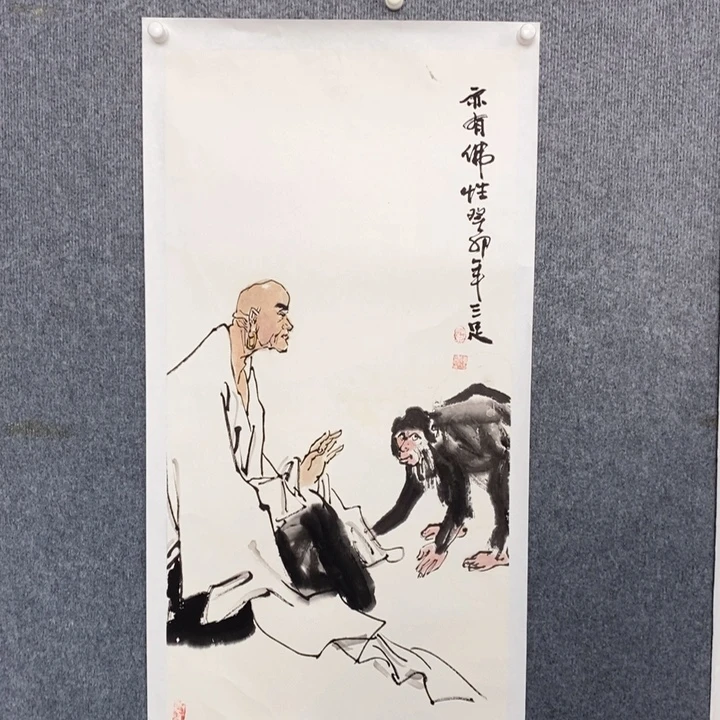 亦有佛性癸卯年三足